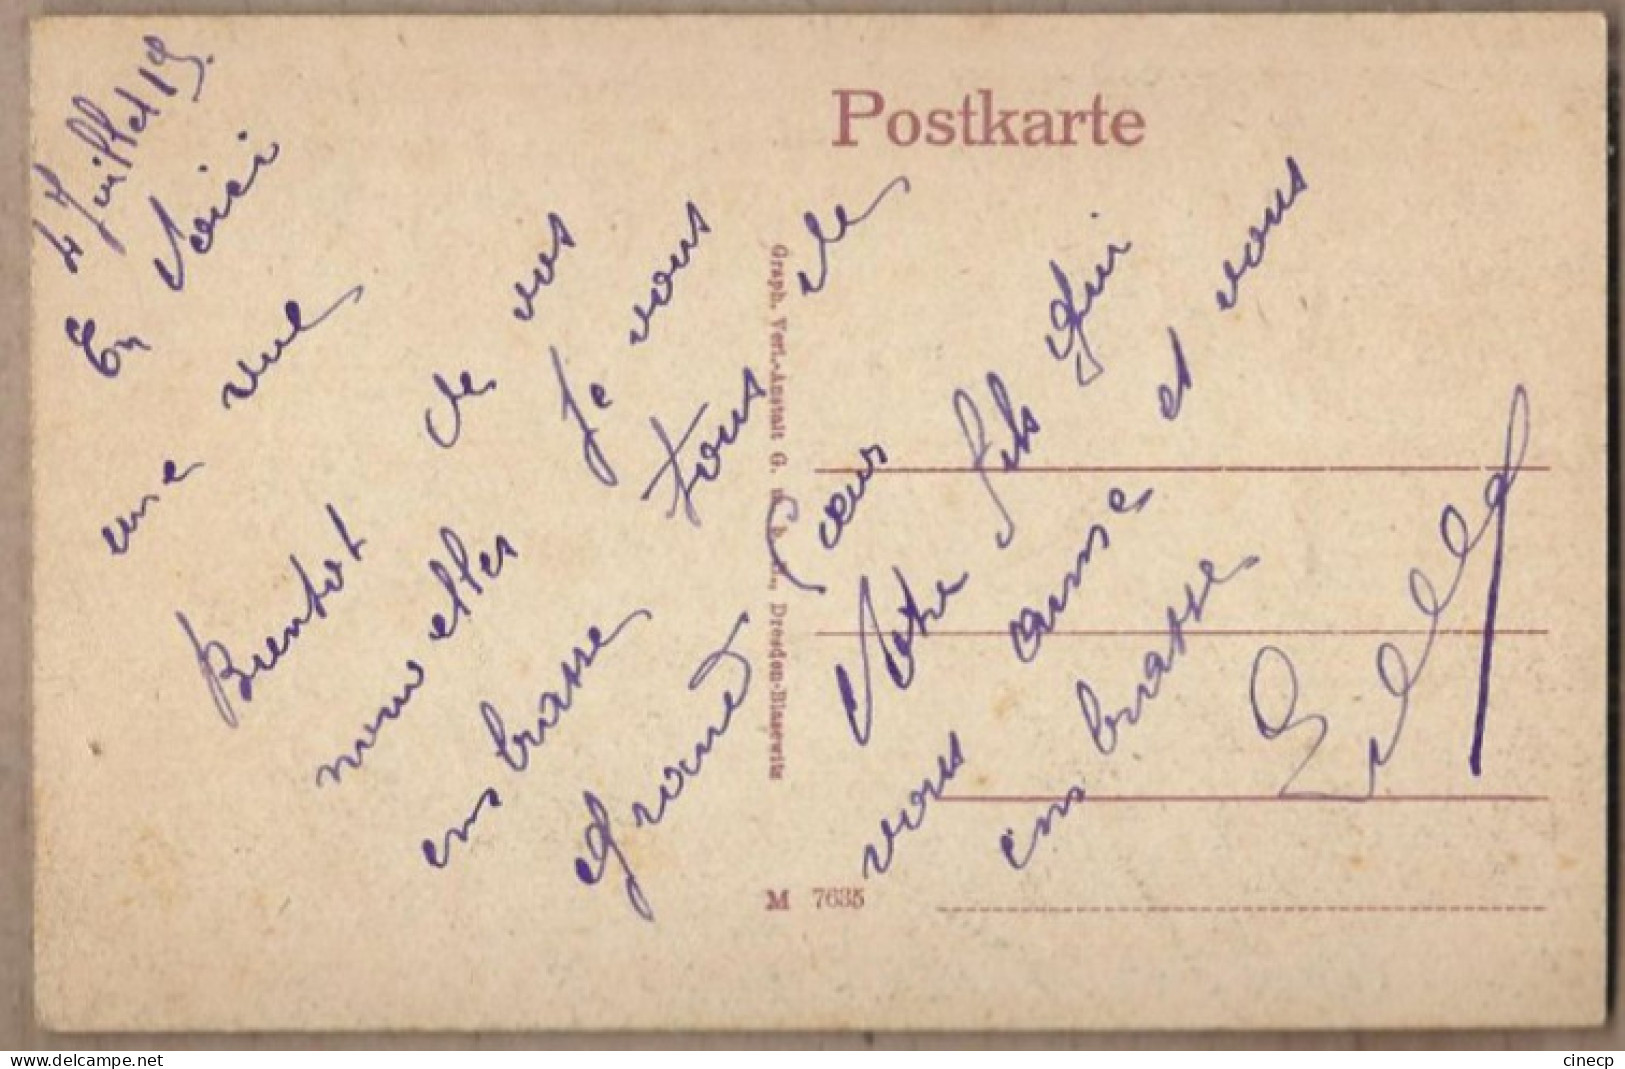 4 Juillet 19.
En Voici
une vue
Bientot de vos
nouvelles Je vous
embrasse tous de
grand cœur
Votre fils qui
vous aime et vous
embrasse
Postkarte
Graph. Verl.-Anstalt G. m. b. H., Dresden-Blasewitz
M 7635
www.delcampe.net
cinecp